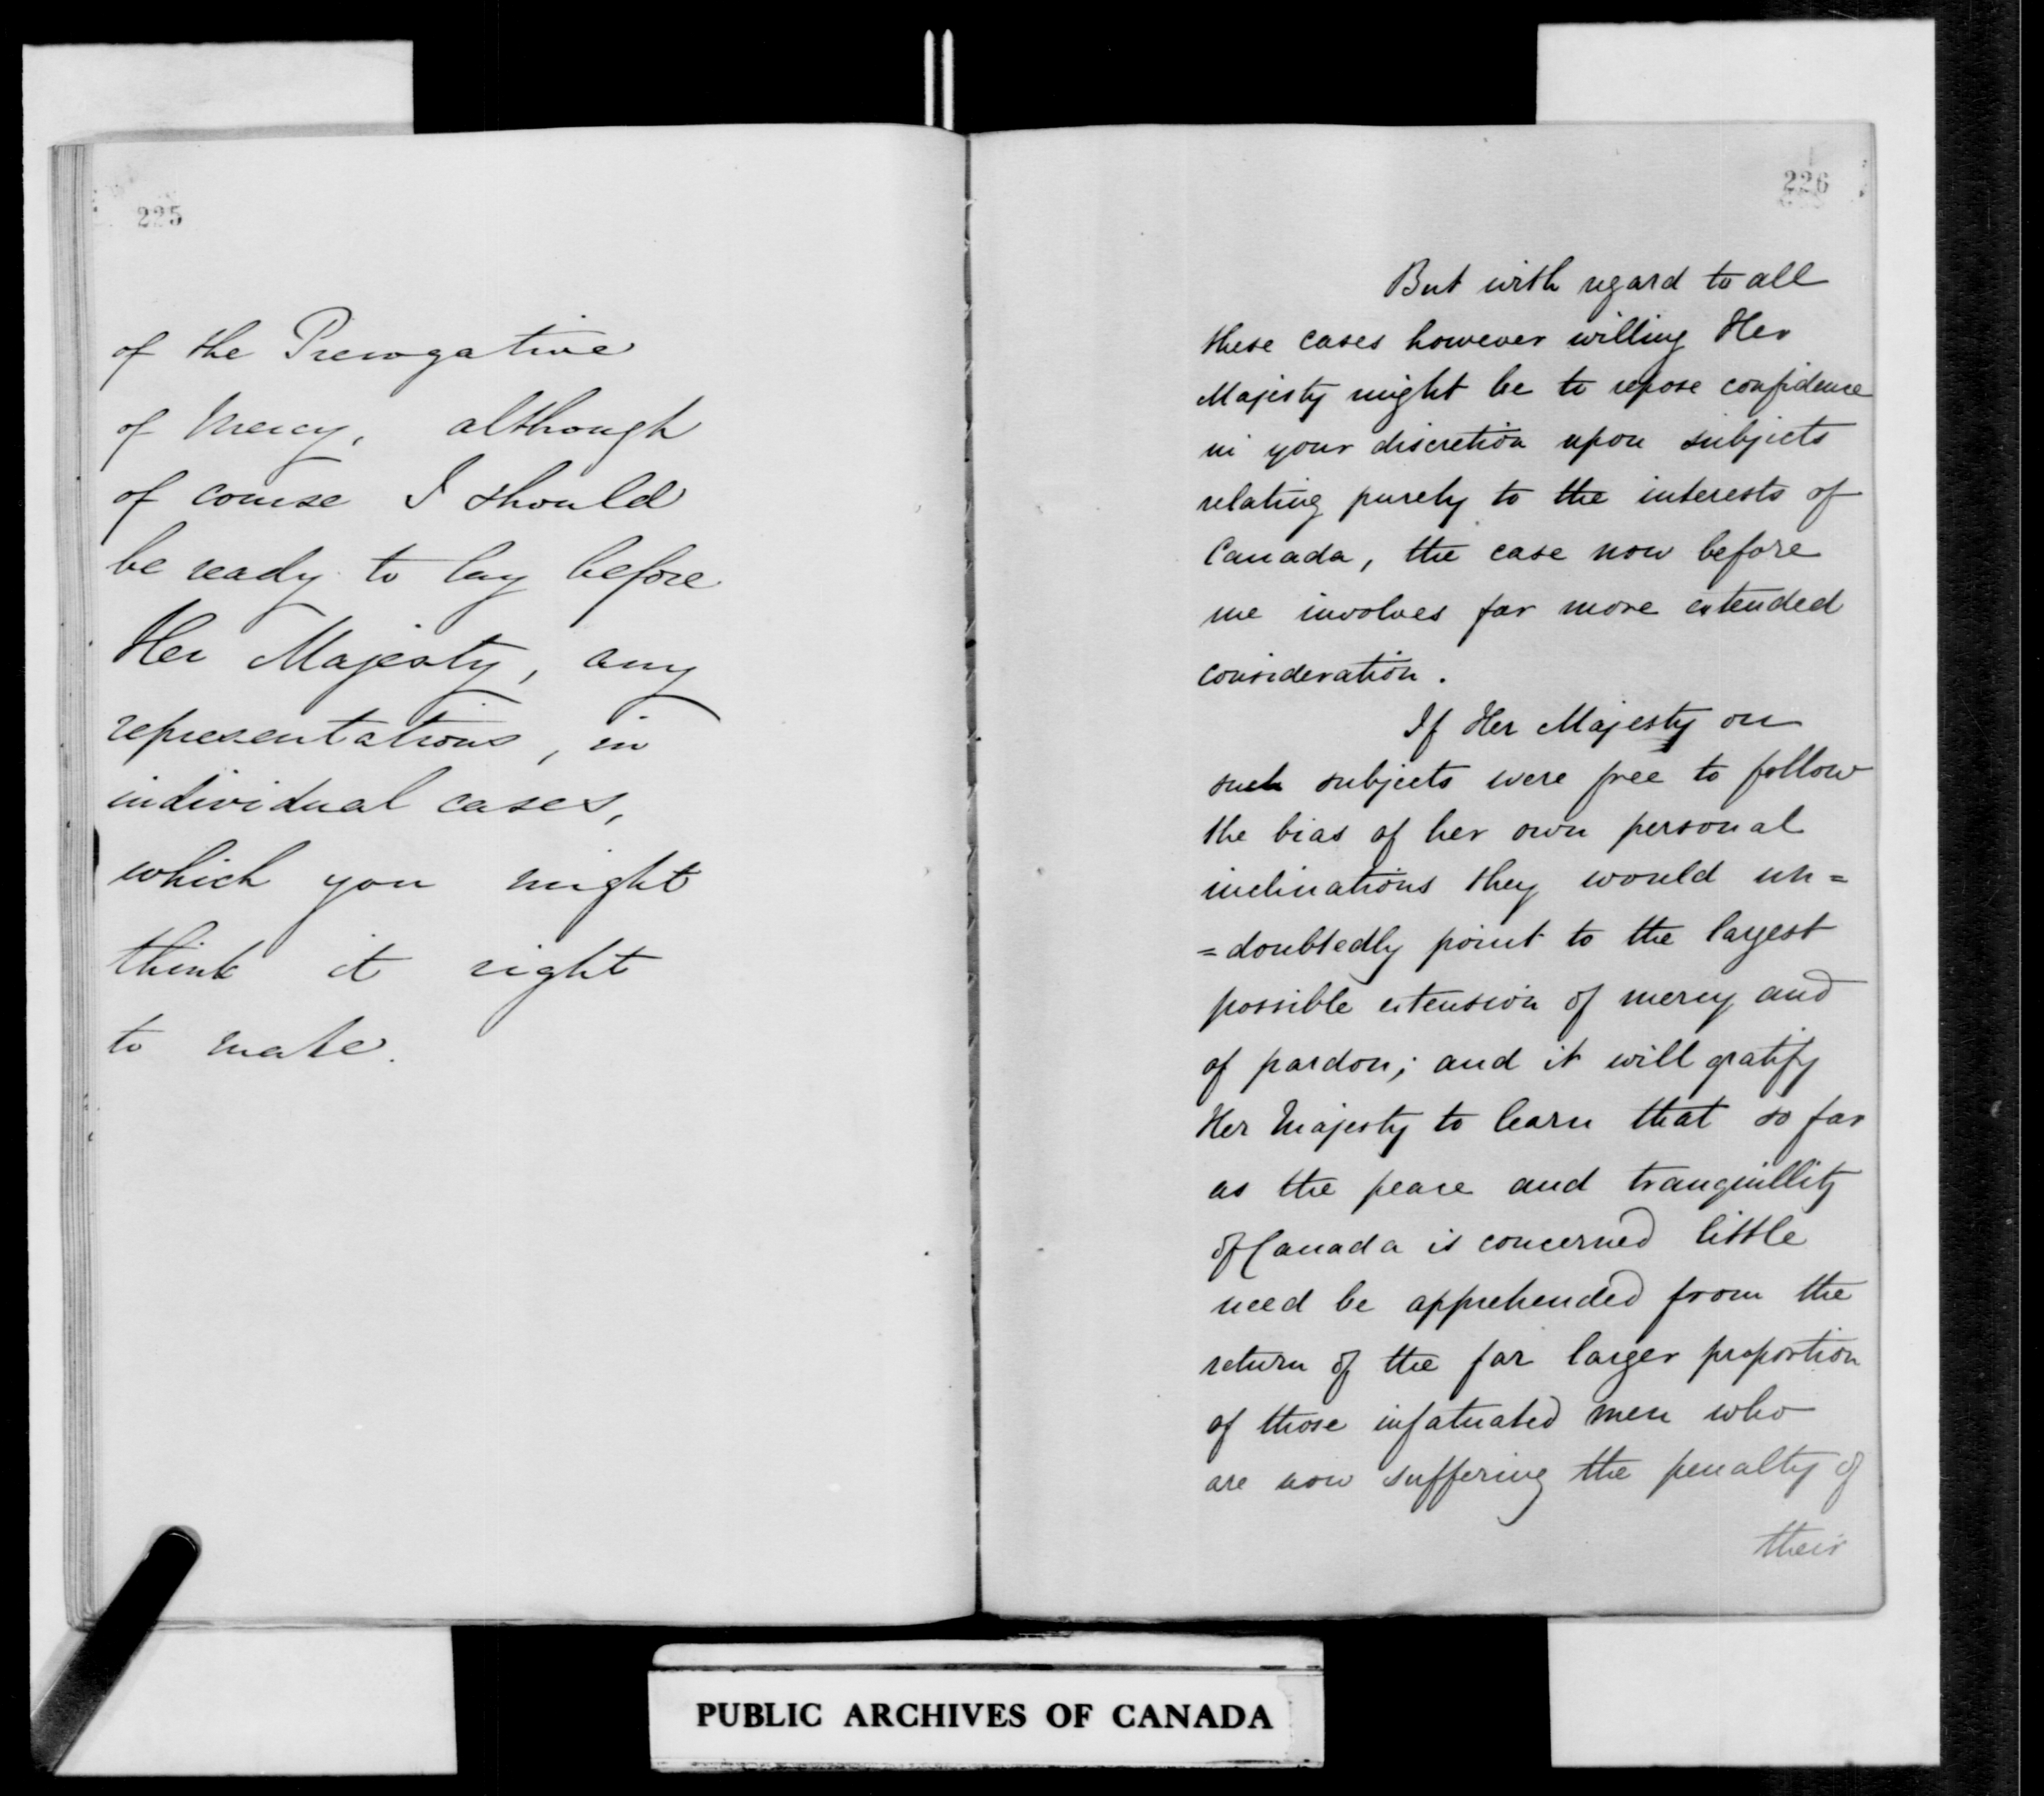 225
of the Prerogative
of Mercy, although
of course I should
be ready to lay before
Her Majesty, any
representations, in
individual cases,
which you might
think it right
to make.
226
But with regard to all
these cases however willing Her
Majesty might be to repose confidence
in your discretion upon subjects
relating purely to the interests of
Canada, the case now before
me involves far more extended
consideration.
If Her Majesty on
such subjects were free to follow
the bias of her own personal
inclinations they would un=
=doubtedly point to the largest
possible extension of mercy and
of pardon; and it will gratify
Her Majesty to learn that so far
as the peace and tranquillity
of Canada is concerned little
need be apprehended from the
return of the far larger proportion
of those infatuated men who
are now suffering the penalty of
their
PUBLIC ARCHIVES OF CANADA